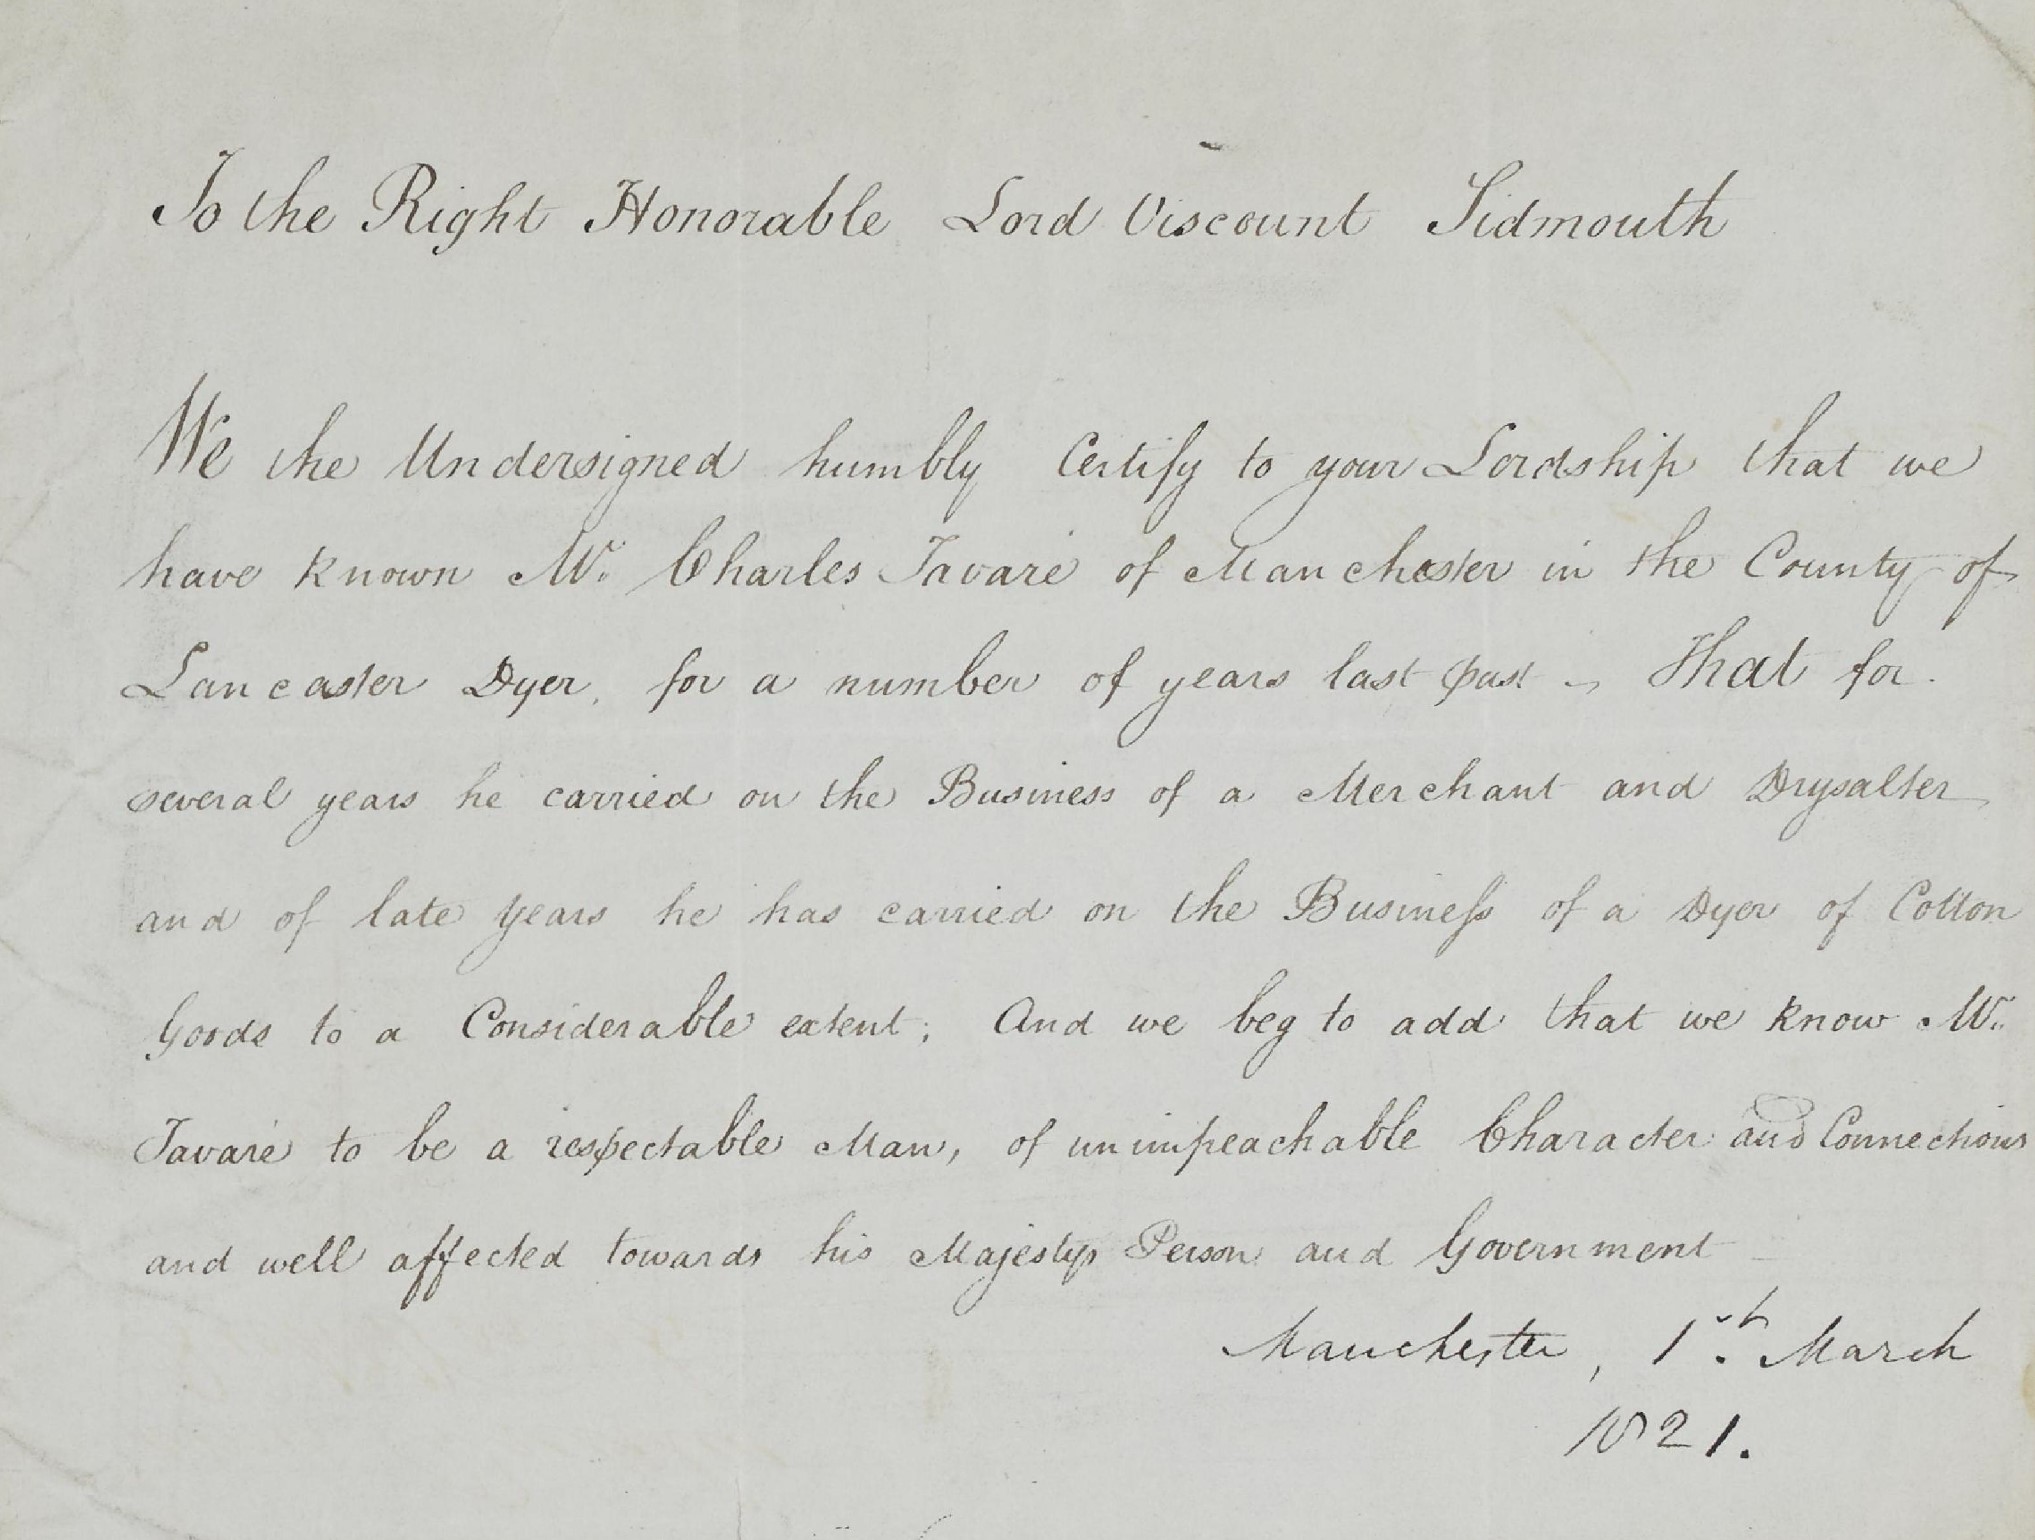 To the Right Honorable Lord Viscount Sidmouth
We the Undersigned humbly Certify to your Lordship that we
have known Mr. Charles Tavaré of Manchester in the County of
Lancaster Dyer, for a number of years last past – That for
several years he carried on the Business of a Merchant and Drysalter
and of late years he has carried on the Business of a Dyer of Cotton
Goods to a Considerable extent; And we beg to add that we know Mr.
Tavaré to be a respectable Man, of unimpeachable Character and Connections
and well affected towards his Majestys Person and Government
Manchester, 1st. March
1821.